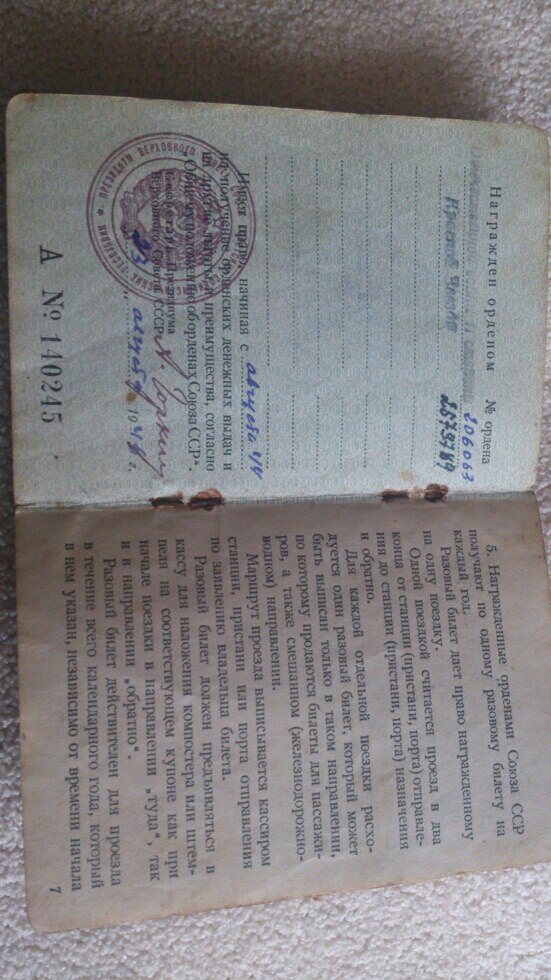 Награжден орденом № ордена
Отечественной войны II степени 206063
Красной Звезды
Имеет право, начиная с августа 44
на получение орденских денежных выдач и
на другие льготы и преимущества, согласно
„Общего положения об орденах Союза ССР“.
Секретарь Президиума
Верховного Совета СССР А. Горкин
„23“ августа 194 г.
А № 140245
5. Награжденные орденами Союза ССР
получают по одному разовому билету на
каждый год.
Разовый билет дает право награжденному
на одну поездку.
Одной поездкой считается проезд в два
конца от станции (пристани, порта) отправле-
ния до станции (пристани, порта) назначения
и обратно.
Для каждой отдельной поездки расхо-
дуется один разовый билет, который может
быть выписан только в таком направлении,
по которому продаются билеты для пассажи-
ров, а также смешанном (железнодорожно-
водном) направлении.
Маршрут проезда выписывается кассиром
станции, пристани или порта отправления
по заявлению владельца билета.
Разовый билет должен предъявляться в
кассу для наложения компостера или штем-
пеля на соответствующем купоне как при
начале поездки в направлении „туда“, так
и в направлении „обратно“.
Разовый билет действителен для проезда
в течение всего календарного года, который
в нем указан, независимо от времени начала
7